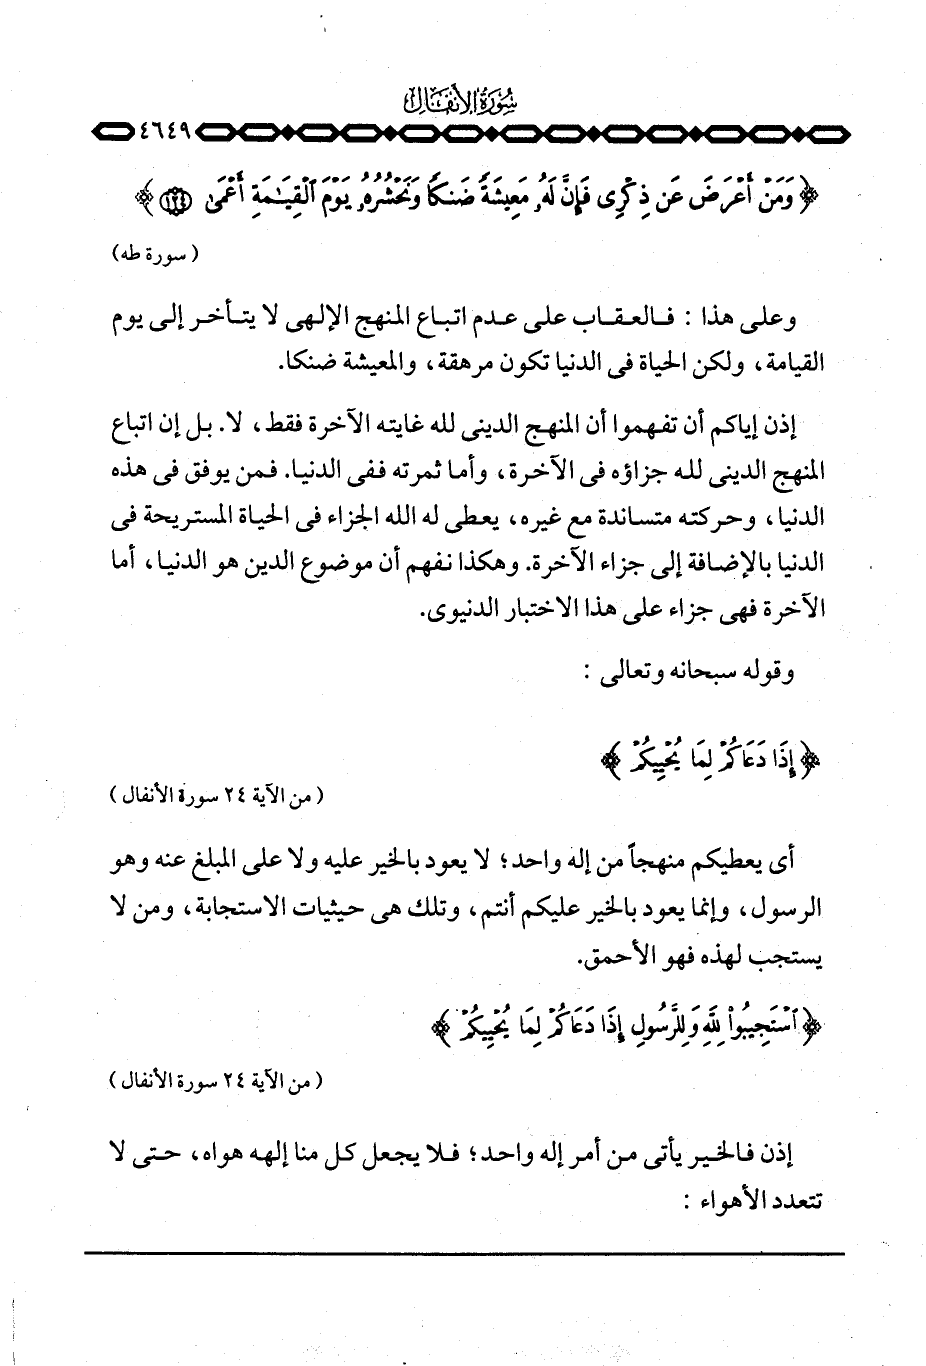 سورة الأنفال
٤٦٤٩
﴿ وَمَنْ أَعْرَضَ عَن ذِكْرِى فَإِنَّ لَهُۥ مَعِيشَةً ضَنكًا وَنَحْشُرُهُۥ يَوْمَ ٱلْقِيَٰمَةِ أَعْمَىٰ ١٢٤ ﴾
( سورة طه)
وعلى هذا : فالعقاب على عدم اتباع المنهج الإلهى لا يتأخر إلى يوم
القيامة، ولكن الحياة فى الدنيا تكون مرهقة، والمعيشة ضنكا.
إذن إياكم أن تفهموا أن المنهج الدينى لله غايته الآخرة فقط، لا. بل إن اتباع
المنهج الدينى لله جزاؤه فى الآخرة، وأما ثمرته ففى الدنيا. فمن يوفق فى هذه
الدنيا، وحركته متساندة مع غيره، يعطى له الله الجزاء فى الحياة المستريحة فى
الدنيا بالإضافة إلى جزاء الآخرة. وهكذا نفهم أن موضوع الدين هو الدنيا، أما
الآخرة فهى جزاء على هذا الاختبار الدنيوى.
وقوله سبحانه وتعالى :
﴿ إِذَا دَعَاكُمْ لِمَا يُحْيِيكُمْ ﴾
( من الآية ٢٤ سورة الأنفال )
أى يعطيكم منهجاً من إله واحد؛ لا يعود بالخير عليه ولا على المبلغ عنه وهو
الرسول، وإنما يعود بالخير عليكم أنتم، وتلك هى حيثيات الاستجابة، ومن لا
يستجب لهذه فهو الأحمق.
﴿ ٱسْتَجِيبُوا۟ لِلَّهِ وَلِلرَّسُولِ إِذَا دَعَاكُمْ لِمَا يُحْيِيكُمْ ﴾
( من الآية ٢٤ سورة الأنفال )
إذن فالخير يأتى من أمر إله واحد؛ فلا يجعل كل منا إلهه هواه، حتى لا
تتعدد الأهواء :